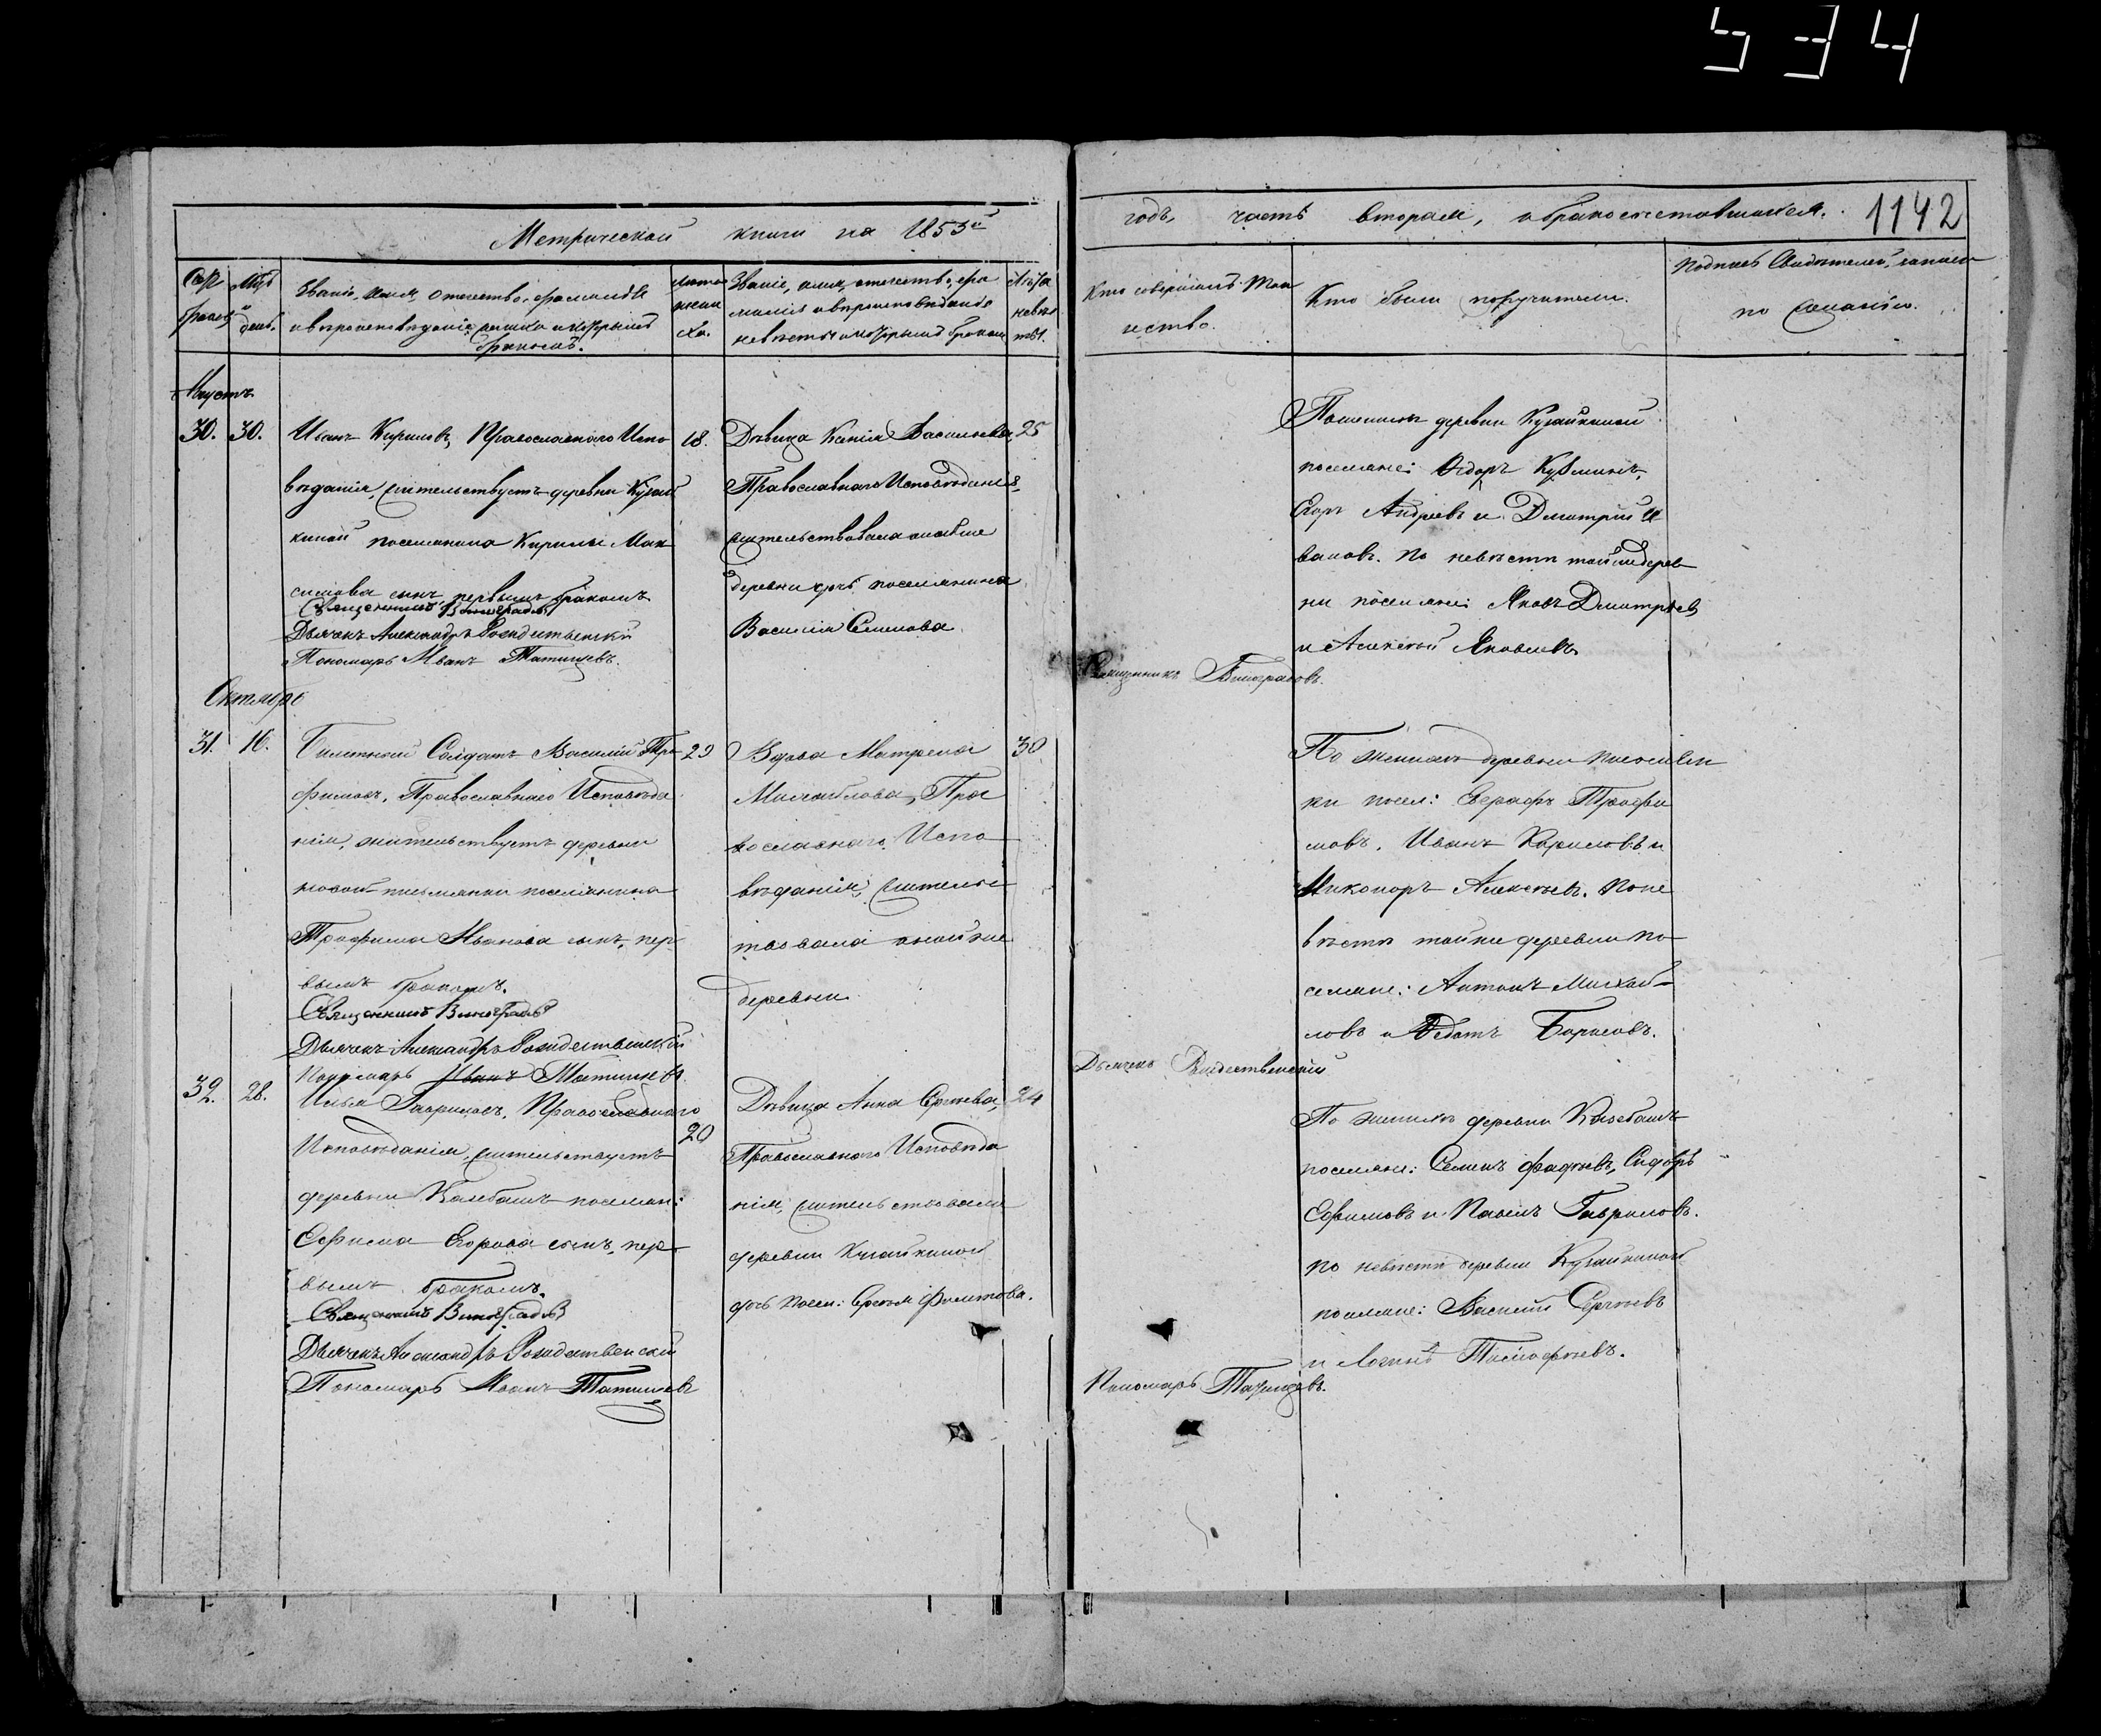 534
Метрической книги на 1853й
годъ, часть вторая, о бракосочетавшихся.
1142
Счр браковъ
Мцъ и день.
Званіе, имя, отечество, фамилія
и вѣроисповѣданіе жениха и которымъ
бракомъ.
Лѣта жени ха.
Званіе, имя, отечество, фа
милія и вѣроисповѣданіе
невѣсты и которымъ бракомъ
Лѣта невѣс ты.
Кто совершалъ Таи
нство.
Кто были поручители.
Подпись свидѣтелей записи
по желанію.
Августъ
30. 30.
Иванъ Кириловъ, Православнаго Испо
вѣданія, жительствуетъ деревни Кугай
киной поселянина Кирилы Мак
симова сынъ, первымъ бракомъ
Священникъ Виноградовъ
Дьячекъ Александръ Рождественскій
Пономарь Иванъ Татищевъ.
18.
Дѣвица Ксенія Васильева,
Православнаго Исповѣданія,
жительствовала
деревни дочь поселянина
Василія Семенова
25
Священникъ Виноградовъ.
По женихѣ деревни Кугайкиной
поселяне: Ѳедоръ Кузминъ,
Егоръ Андреевъ и Дмитрій И
вановъ. По невѣстѣ той же дерев
ни поселяне: Яковъ Дмитріевъ
и Алексѣй Яковлевъ
Октябрь
31. 16.
Билетный Солдатъ Василій Тро
фимовъ, Православнаго Исповѣда
нія, жительствуетъ деревни
новой письмянки поселянина
Трофима Иванова сынъ, пер
вымъ бракомъ.
Священникъ Виноградовъ
Дьячекъ Александръ Рождественскій
Пономарь Иванъ Татищевъ.
29
Вдова Матрена
Михайлова, Пра
вославнаго Испо
вѣданія, жительс
твовала оной же
деревни.
30
Дьячекъ Рождественскій
По женихѣ деревни письмян
ки посел: Трофи
мовъ, Иванъ Кириловъ и
Никоноръ Алексѣевъ. По не
вѣстѣ той же деревни по
селяне: Антонъ Михай
ловъ и Ѳедотъ Борисовъ.
32. 28.
Илья Гавриловъ, Православнаго
Исповѣданія, жительствуетъ
деревни поселян:
Ефима Егорова сынъ, пер
вымъ бракомъ.
Священникъ Виноградовъ
Дьячекъ Александръ Рождественскій
Пономарь Иванъ Татищевъ
20
Дѣвица Анна Сергѣева,
Православнаго Исповѣда
нія, жительствовала
деревни Кугайкиной
дочь посел: Сергѣя Филипова.
24
Пономарь Татищевъ.
По женихѣ деревни
поселяне: Семенъ Фадѣевъ, Сидоръ
Ефимовъ и Павелъ Гавриловъ.
по невѣстѣ деревни Кугайкиной
поселяне: Василій Сергѣевъ
и Логинъ Тимофѣевъ.